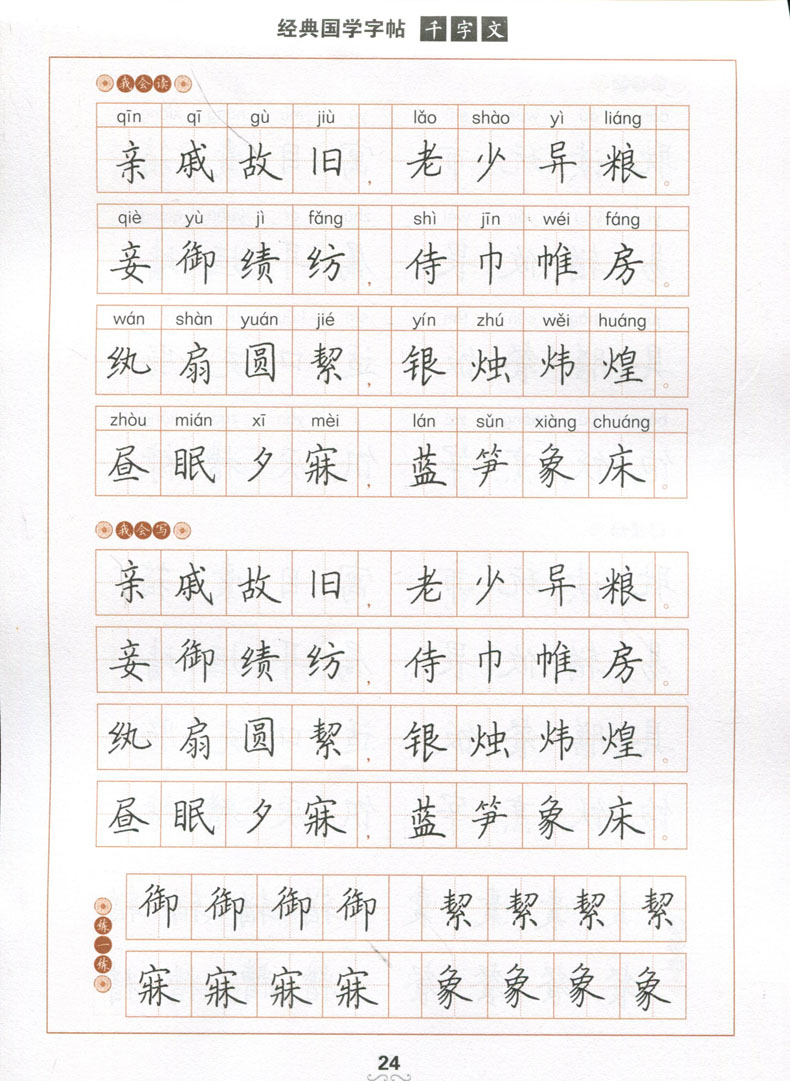 经典国学字帖 千字文
我会读
qīn qī gù jiù lǎo shào yì liáng
亲戚故旧，老少异粮。
qiè yù jì fǎng shì jīn wéi fáng
妾御绩纺，侍巾帷房。
wán shàn yuán jié yín zhú wěi huáng
纨扇圆絜，银烛炜煌。
zhòu mián xī mèi lán sǔn xiàng chuáng
昼眠夕寐，蓝笋象床。
我会写
亲戚故旧，老少异粮。
妾御绩纺，侍巾帷房。
纨扇圆絜，银烛炜煌。
昼眠夕寐，蓝笋象床。
练一练
御御御御 絜絜絜絜
寐寐寐寐 象象象象
24